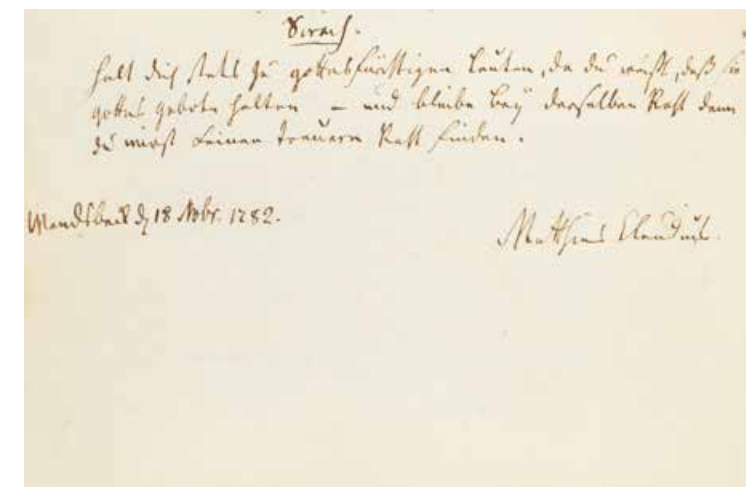 Sirach.
halt dich stets zu gottesfürchtigen Leuten, da du weißt, daß sie
gottes gebote halten – und bleibe bey derselben Raht denn
du wirst keinen treuern Raht finden.
Wandsbeck d. 18 Nobr. 1782.
Matthias Claudius.